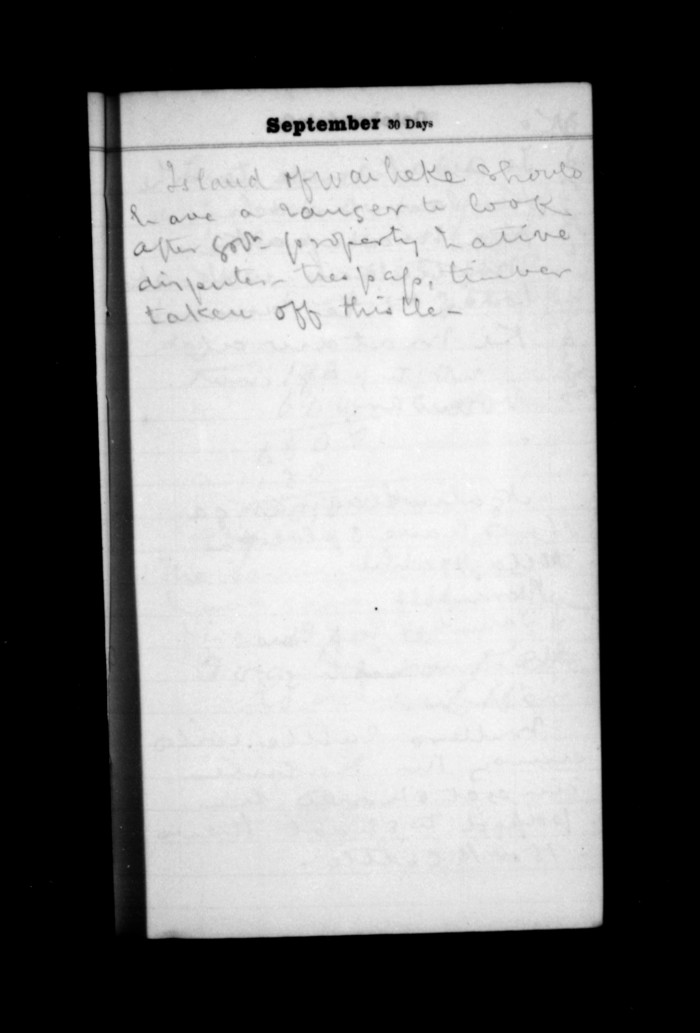 September 30 Days
Island of Waiheke should
have a ranger to look
after Govt property Native
disputes - trespass, timber
taken off thistle -